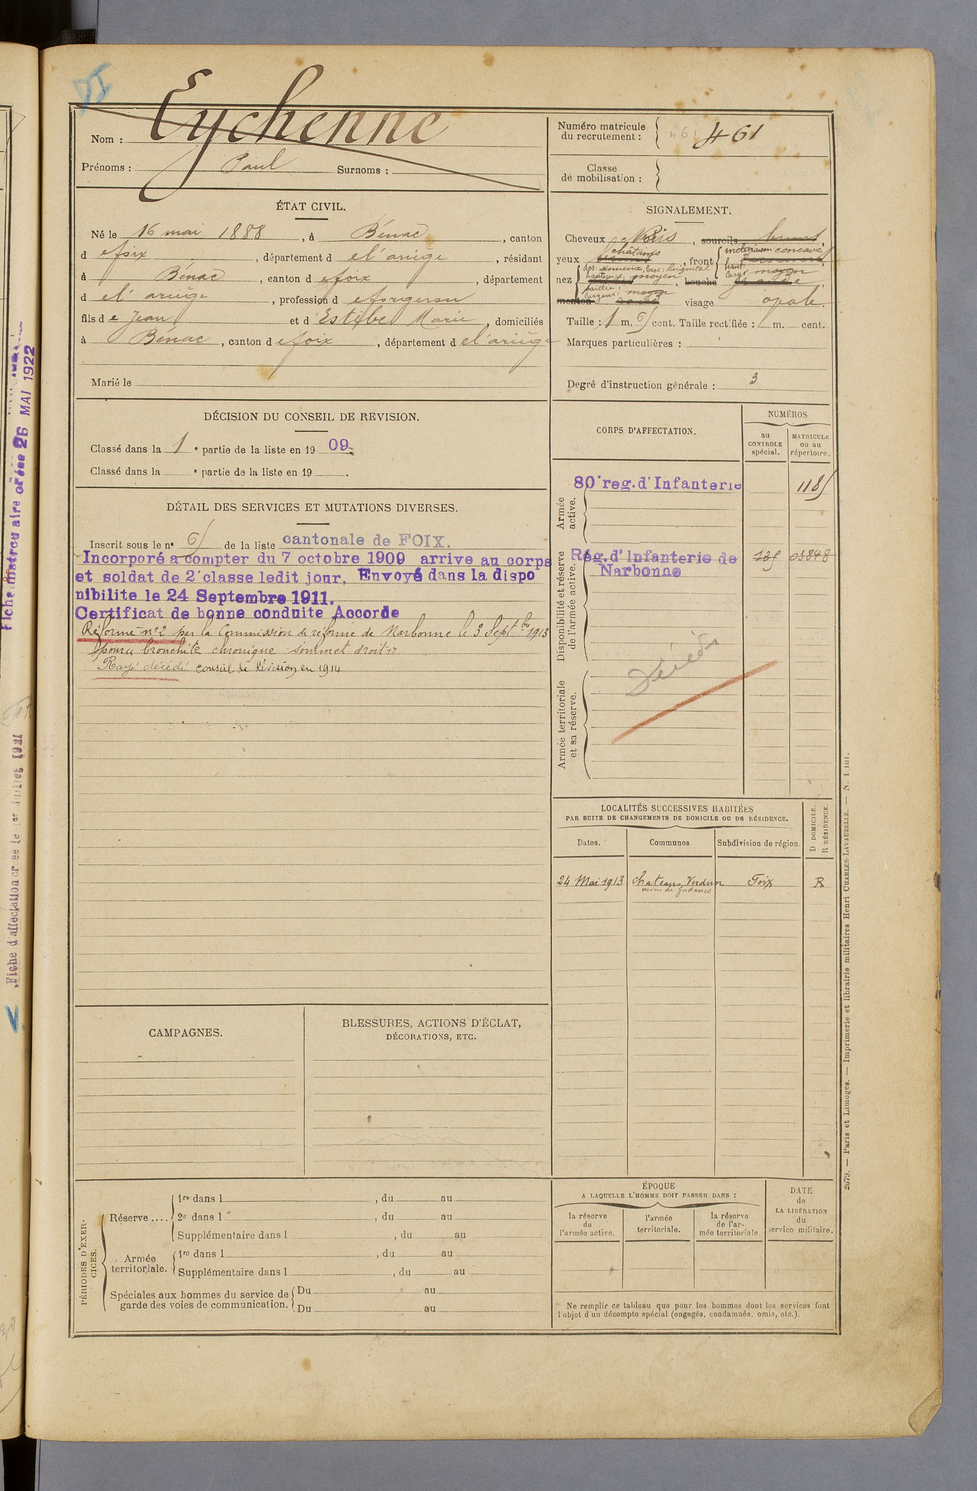 Nom : Eychenne
Prénoms : Paul Surnoms :
Numéro matricule du recrutement : 461
Classe de mobilisation :
ÉTAT CIVIL.
Né le 16 mai 1888, à Bénac, canton
d e foix, département d e l'ariège, résidant
à Bénac, canton d e foix, département
d e l'ariège, profession d e forgeron
fils d e Jean et d' Estèbe Marie, domiciliés
à Bénac, canton d e foix, département d e l'ariège
Marié le
SIGNALEMENT.
Cheveux Noirs, sourcils
yeux châtains, front inclinaison concave
haut.
larg. moyen
nez dos: base: horizontal
moyen, bouche
menton visage opale.
Taille : 1 m. cent. Taille rectifiée : m. cent.
Marques particulières :
Degré d'instruction générale : 3
DÉCISION DU CONSEIL DE REVISION.
Classé dans la 1e partie de la liste en 1909.
Classé dans la e partie de la liste en 19 .
DÉTAIL DES SERVICES ET MUTATIONS DIVERSES.
Inscrit sous le n° de la liste cantonale de FOIX.
Incorporé a compter du 7 octobre 1909 arrive au corps
et soldat de 2e classe ledit jour. Envoyé dans la dispo
nibilite le 24 Septembre 1911.
Certificat de bonne conduite Accorde
Réformé n°2 par la Commission de réforme de Narbonne le 3 Septbre 1913
pour bronchite chronique sommet droit
Rayé décédé conseil de Révision en 1914
CORPS D'AFFECTATION.
NUMÉROS
au CONTROLE spécial.
MATRICULE ou au répertoire.
Armée active.
80e reg. d'Infanterie 1185
Disponibilité et réserve de l'armée active.
Rég. d'Infanterie de
Narbonne
Armée territoriale et sa réserve.
Décédé
LOCALITÉS SUCCESSIVES HABITÉES
PAR SUITE DE CHANGEMENTS DE DOMICILE OU DE RÉSIDENCE.
D. DOMICILE.
R. RÉSIDENCE.
Dates. Communes Subdivision de région.
24 Mai 1913 Chateau Verdun Foix R
CAMPAGNES.
BLESSURES, ACTIONS D'ÉCLAT,
DÉCORATIONS, ETC.
PÉRIODES D'EXERCICES.
Réserve .... 1re dans l , du au
2e dans l , du au
Supplémentaire dans l , du au
Armée territoriale. 1re dans l , du au
Supplémentaire dans l , du au
Spéciales aux hommes du service de garde des voies de communication. Du au
Du au
ÉPOQUE
A LAQUELLE L'HOMME DOIT PASSER DANS :
la réserve de l'armée active.
l'armée territoriale.
la réserve de l'armée territoriale
DATE de LA LIBÉRATION du service militaire.
Ne remplir ce tableau que pour les hommes dont les services font
l'objet d'un décompte spécial (engagés, condamnés, omis, etc.).
2079. — Paris et Limoges. — Imprimerie et librairie militaires Henri CHARLES-LAVAUZELLE. — N. 1 int.
26 MAI 1922